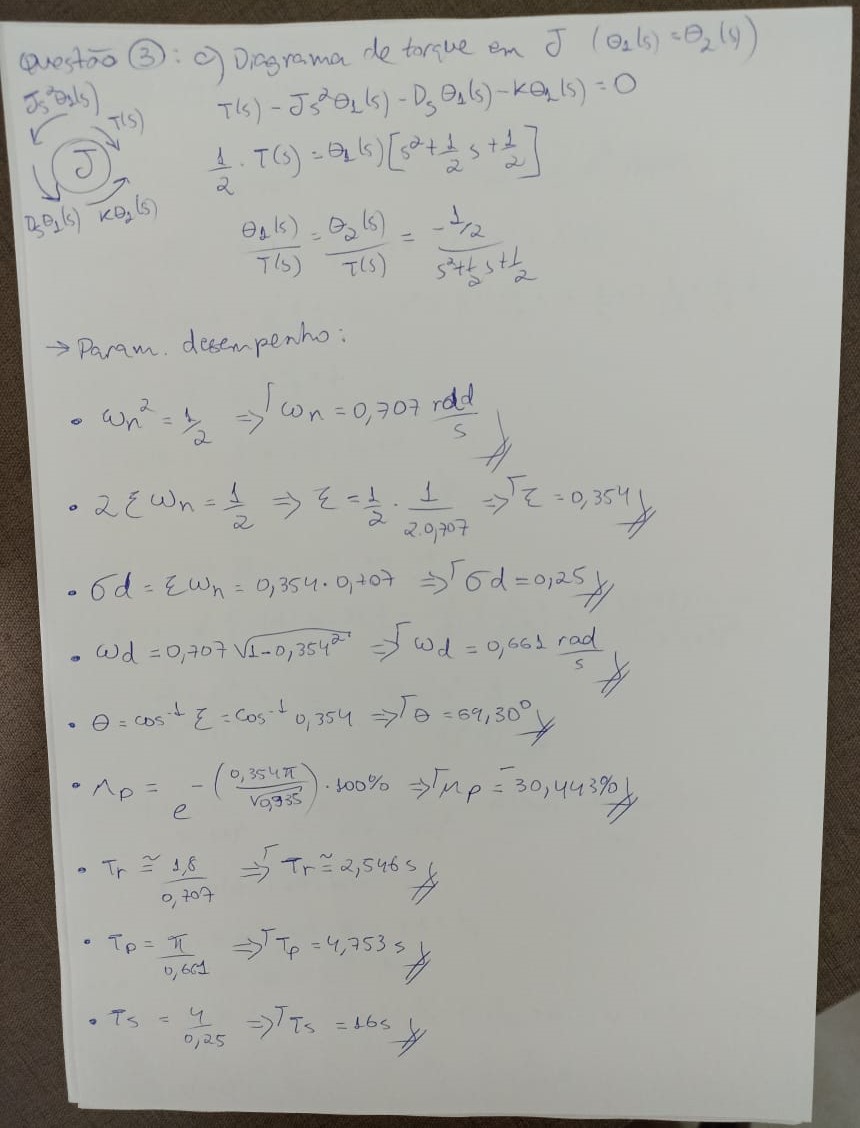 Questão ③: c) Diagrama de torque em J (θ1(s) = θ2(s))
Js²θ1(s)
T(s)
J
Dsθ1(s) Kθ2(s)
T(s) - Js²θ1(s) - Dsθ1(s) - Kθ1(s) = 0
1/2 · T(s) = θ1(s) [s² + 1/2 s + 1/2]
θ1(s)/T(s) = θ2(s)/T(s) = -1/2 / s² + 1/2 s + 1/2
→ Param. desempenho:
• ωn² = 1/2 ⇒ ωn = 0,707 rad/s
• 2ξωn = 1/2 ⇒ ξ = 1/2 · 1/2.0,707 ⇒ ξ = 0,354
• σd = ξωn = 0,354 · 0,707 ⇒ σd = 0,25
• ωd = 0,707 √1-0,354² ⇒ ωd = 0,661 rad/s
• θ = cos⁻¹ ξ = cos⁻¹ 0,354 ⇒ θ = 69,30°
• Mp = e -(0,354π/√0,935) · 100% ⇒ Mp = 30,443%
• Tr ≅ 1,8/0,707 ⇒ Tr ≅ 2,546 s
• Tp = π/0,661 ⇒ Tp = 4,753 s
• Ts = 4/0,25 ⇒ Ts = 16s